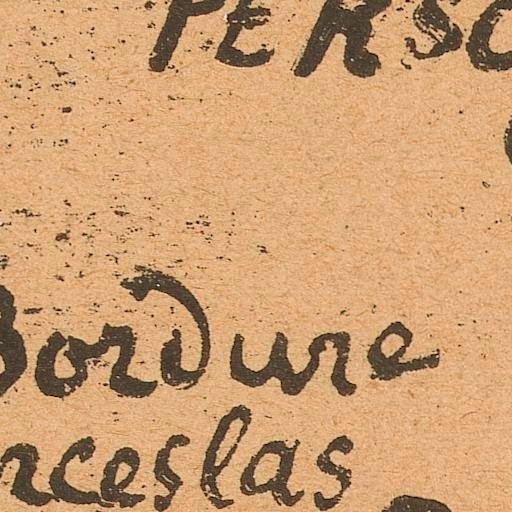 PERSO
Bordure
nceslas